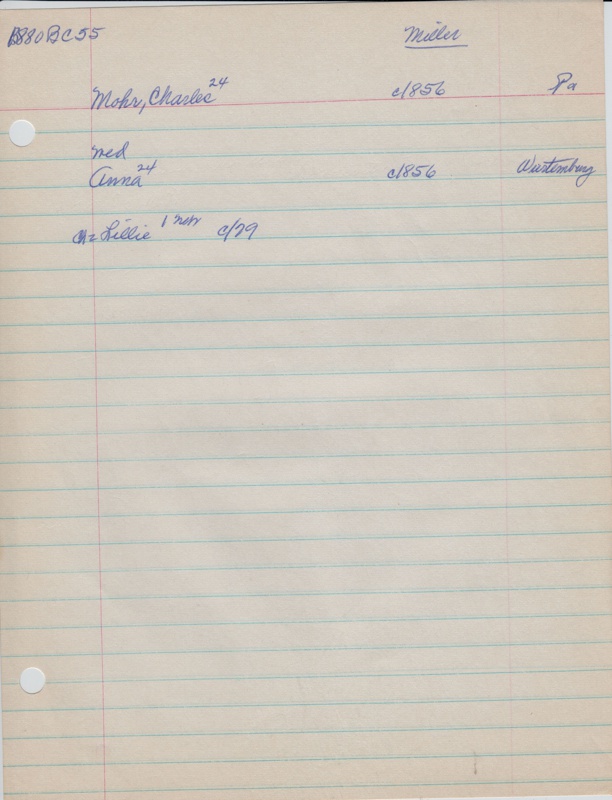 1880 BC 55 Miller
Mohr, Charles 24 c/1856 Pa
med
Anna 24 c/1856 Wurtemburg
Ch = Lillie 1 nov c/79